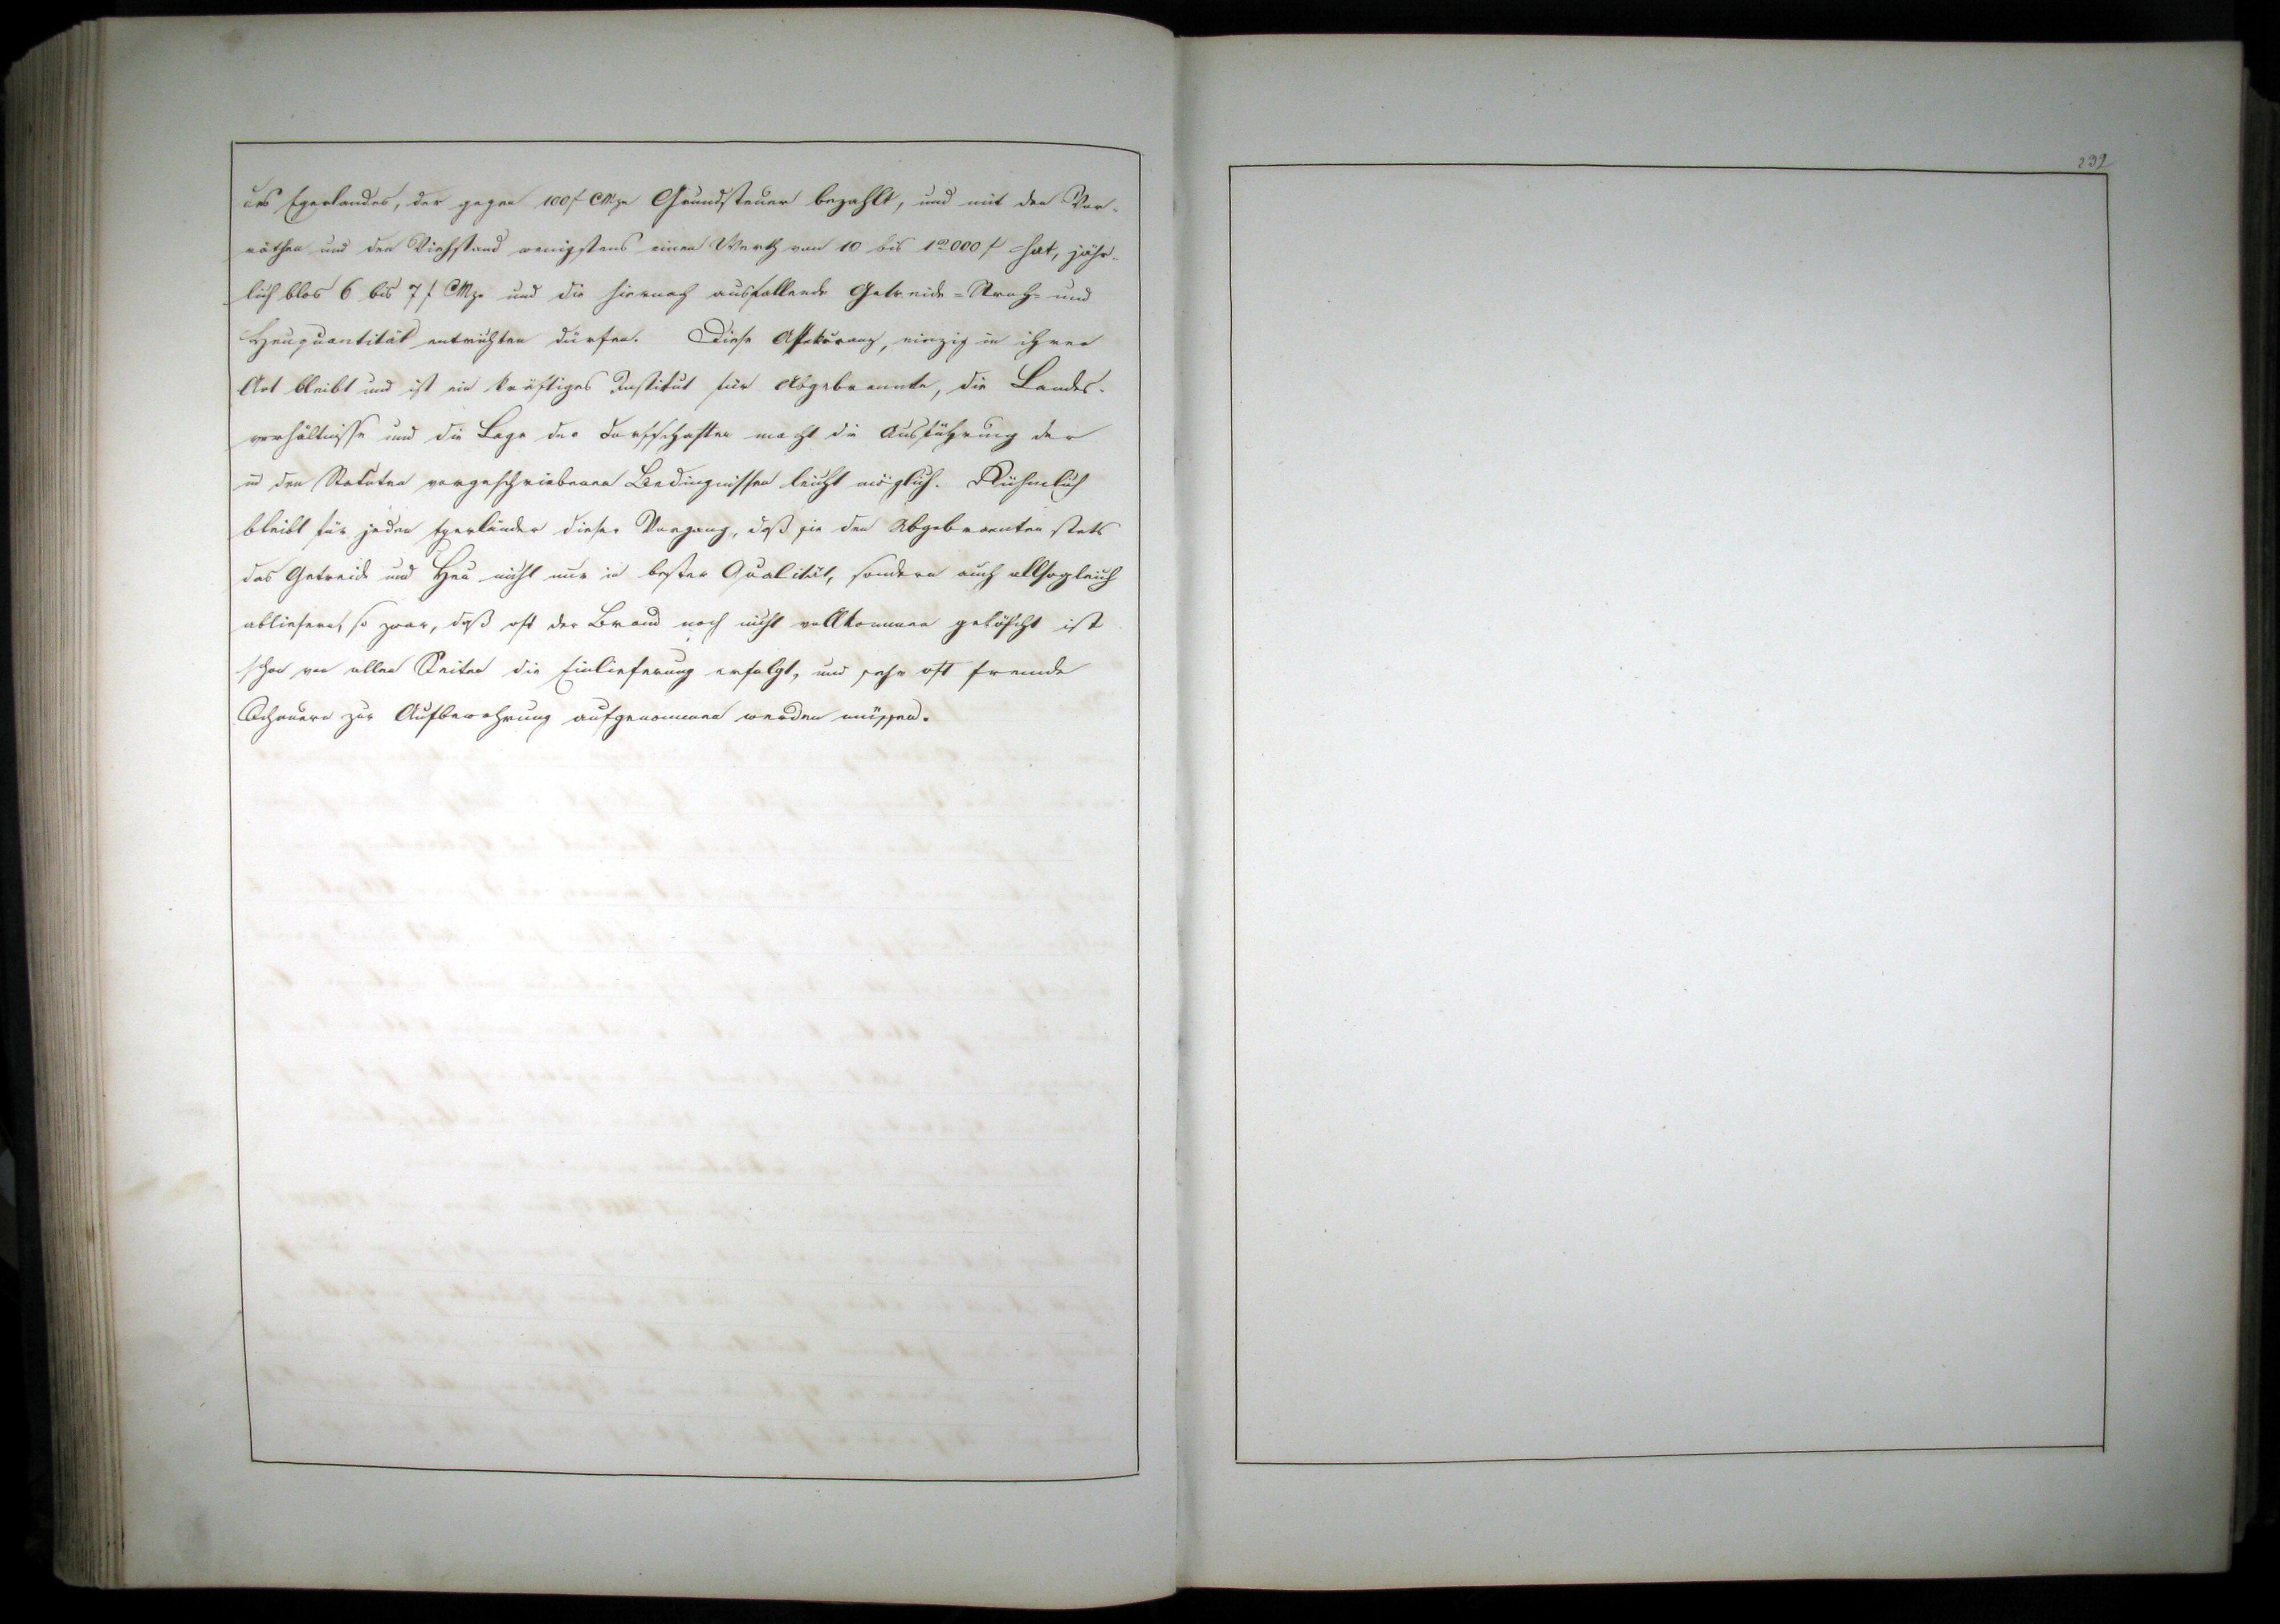 des Egerlandes, der gegen 100 f CMze Grundsteuer bezahlt, und mit den Vor-
räthen und den Viehstand wenigstens einen Werth von 10 bis 12000 f hat, jähr-
lich blos 6 bis 7 f CMze und die hiernach ausfallende Getreide=Stroh- und
Heuquantität entrichten dürfen. Diese Assekuranz, einzig in ihrer
Art bleibt und ist ein kräftiges Institut für Abgebrannte, die Landes-
verhältnisse und die Lage der Dorfschaften macht die Ausführung der
in den Statuten vorgeschriebenen Bedingnissen leicht möglich. Rühmlich
bleibt für jeden Egerländer dieser Vorgang, daß sie den Abgebrannten stets
das Getreide und Heu nicht nur in bester Qualität, sondern auch allsogleich
abliefern, so zwar, daß oft der Brand noch nicht vollkommen gelöscht ist
schon von allen Seiten die Einlieferung erfolgt, und sehr oft fremde
Scheuern zur Aufbewahrung aufgenommen werden müssen.
239